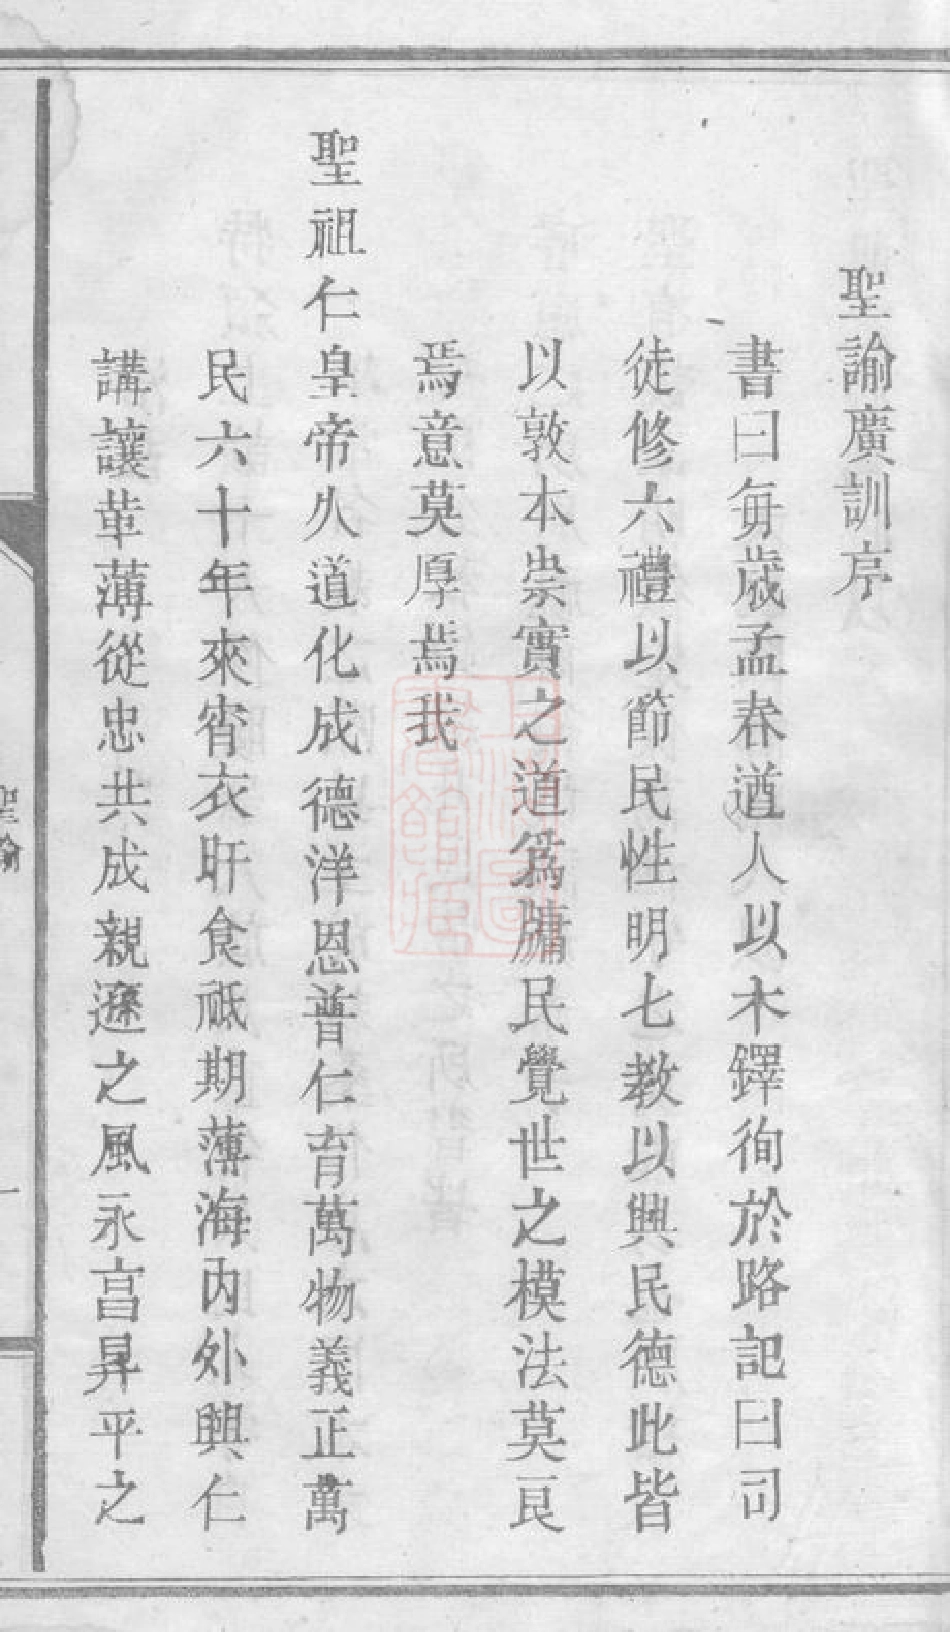 聖諭廣訓序
書曰每歲孟春遒人以木鐸徇於路記曰司
徒修六禮以節民性明七教以興民德此皆
以敦本崇實之道爲牖民覺世之模法莫良
焉意莫厚焉我
聖祖仁皇帝久道化成德洋恩普仁育萬物義正萬
民六十年來宵衣旰食祗期薄海內外興仁
講讓革薄從忠共成親遜之風永享昇平之
聖諭
一